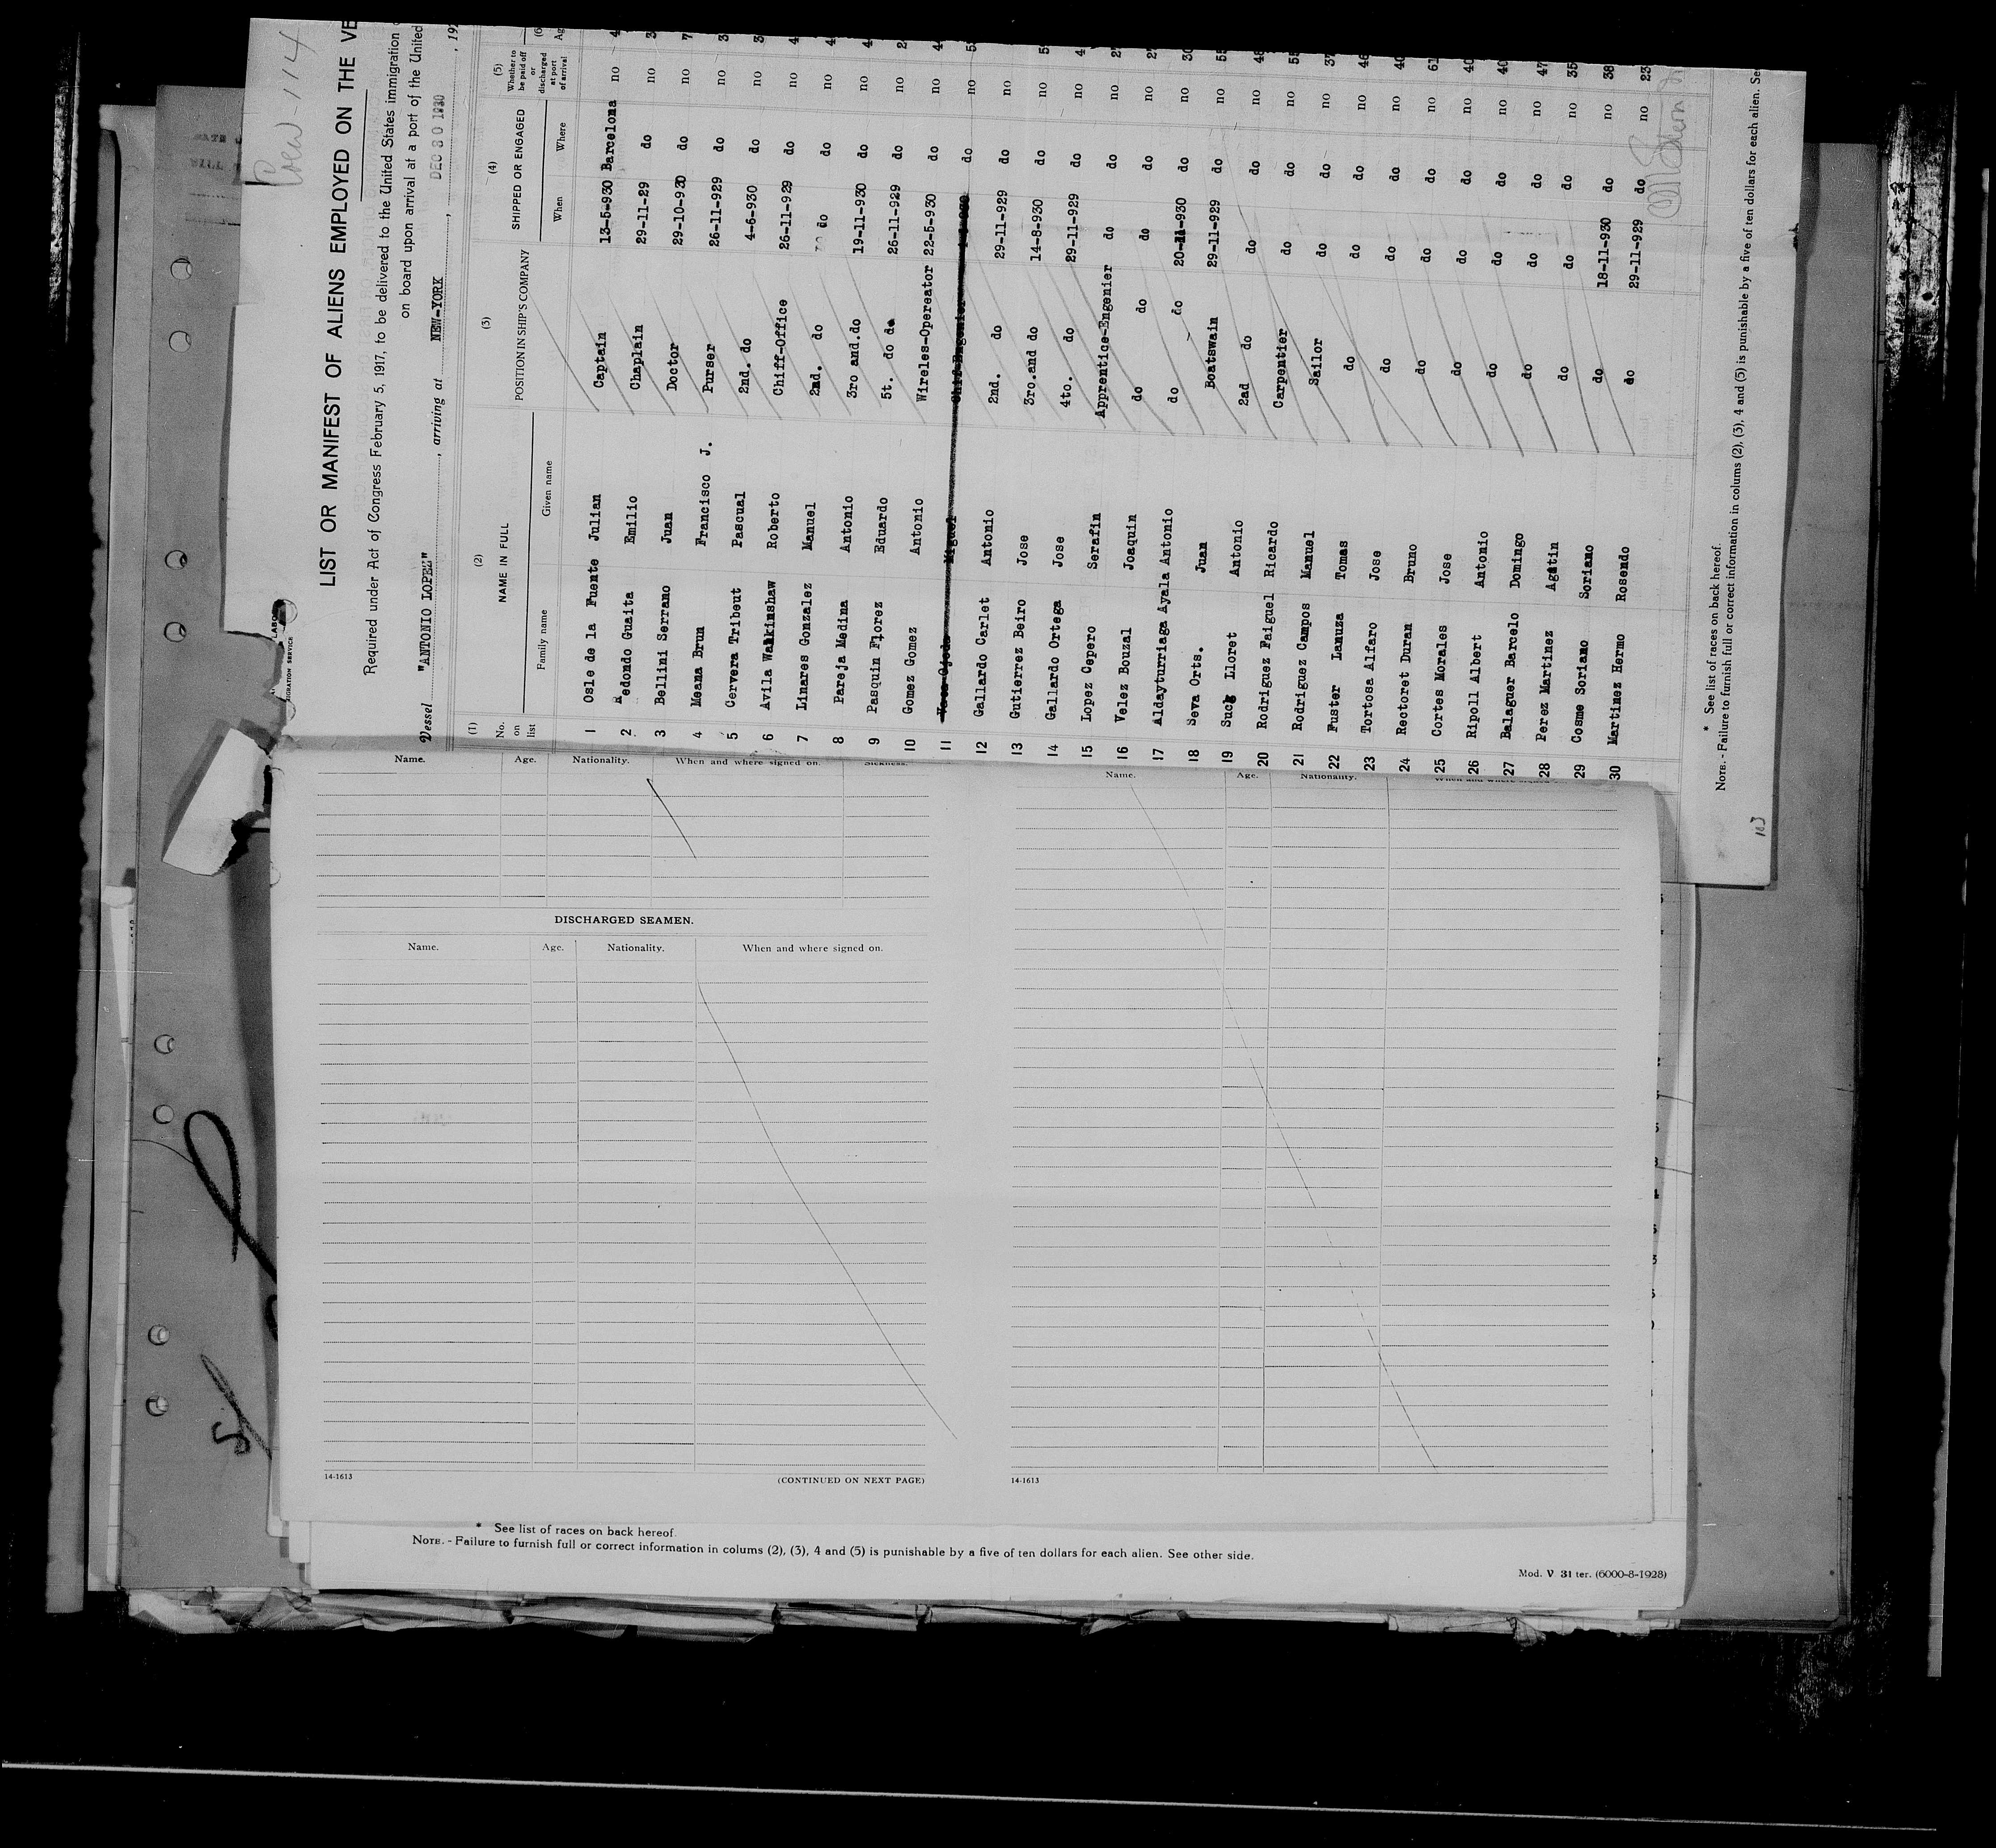 Crew 114
LIST OR MANIFEST OF ALIENS EMPLOYED ON THE VE
Required under Act of Congress February 5, 1917, to be delivered to the United States immigration
on board upon arrival at a port of the United
Vessel "ANTONIO LOPEZ", arriving at NEW-YORK, DEC 30 1930, 19
(1) (2) (3) (4) (5) (6
No. on list NAME IN FULL POSITION IN SHIP'S COMPANY SHIPPED OR ENGAGED Whether to be paid off or discharged at port of arrival Ag
Family name Given name When Where
1 Osle de la Fuente Julian Captain 13-5-930 Barcelona no 4
2 Redondo Guaita Emilio Chaplain 29-11-29 do no 3
3 Bellini Serrano Juan Doctor 29-10-930 do no 7
4 Meana Brun Francisco J. Purser 26-11-929 do no 3
5 Cervera Tribeut Pascual 2nd. do 4-6-930 do no 3
6 Avila Walkinshaw Roberto Chiff-Office 26-11-929 do no 4
7 Linares Gonzalez Manuel 2nd. do do do no 4
8 Pareja Medina Antonio 3ro and.do 19-11-930 do no 4
9 Pasquin Florez Eduardo 5t. do do 26-11-929 do no 2
10 Gomez Gomez Antonio Wireles-Opereator 22-5-930 do no 4
11 Miguel do no 5
12 Gallardo Carlet Antonio 2nd. do 29-11-929 do no
13 Gutierrez Beiro Jose 3ro.and do 14-8-930 do no 5
14 Gallardo Ortega Jose 4to. do 29-11-929 do no 4
15 Lopez Cepero Serafin Apprentice-Engenier do do no 2
16 Velez Bouzal Joaquin do do do do no 2
17 Aldayturriaga Ayala Antonio do do 20-11-930 do no 30
18 Seva Orts. Juan Boatswain 29-11-929 do no 55
19 Suck Lloret Antonio 2ad do do do no 48
20 Rodriguez Faiguel Ricardo Carpentier do do no 55
21 Rodriguez Campos Manuel Sailor do do no 37
22 Fuster Lanuza Tomas do do do no 46
23 Tortosa Alfaro Jose do do do no 40
24 Rectoret Duran Bruno do do do no 61
25 Cortes Morales Jose do do do no 40
26 Ripoll Albert Antonio do do do no 40
27 Balaguer Barcelo Domingo do do do no 47
28 Perez Martinez Agâtin do do do no 35
29 Cosme Soriano Soriano do 18-11-930 do no 38
30 Martinez Hermo Rosendo do 29-11-929 do no 23
* See list of races on back hereof.
NOTE. - Failure to furnish full or correct information in colums (2), (3), 4 and (5) is punishable by a five of ten dollars for each alien. Se
103
Name. Age. Nationality. When and where signed on. Sickness.
Name. Age. Nationality. When and where signed on.
DISCHARGED SEAMEN.
Name. Age. Nationality. When and where signed on.
14-1613 (CONTINUED ON NEXT PAGE)
14-1613
* See list of races on back hereof.
NOTE. - Failure to furnish full or correct information in colums (2), (3), 4 and (5) is punishable by a five of ten dollars for each alien. See other side.
Mod. V 31 ter. (6000-8-1928)